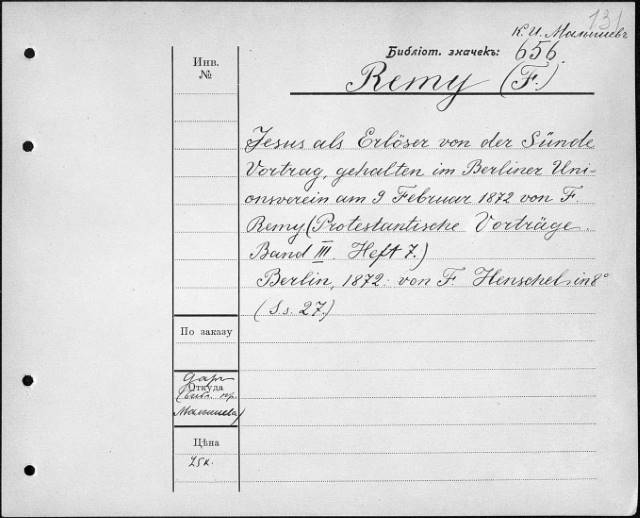 131
К. И. Малышевъ
Библіот. значекъ: 656.
Remy (F.)
Инв.
№
Jesus als Erlöser von der Sünde
Vortrag, gehalten im Berliner Uni-
onsverein am 9 Februar 1872 von F.
Remy (Protestantische Vorträge.
Band III. Heft 7.)
Berlin, 1872. von F. Henschel. in 8°
(S.s. 27.)
По заказу
Даръ
Откуда
(библ. пр.
Малышева)
Цѣна
25к.